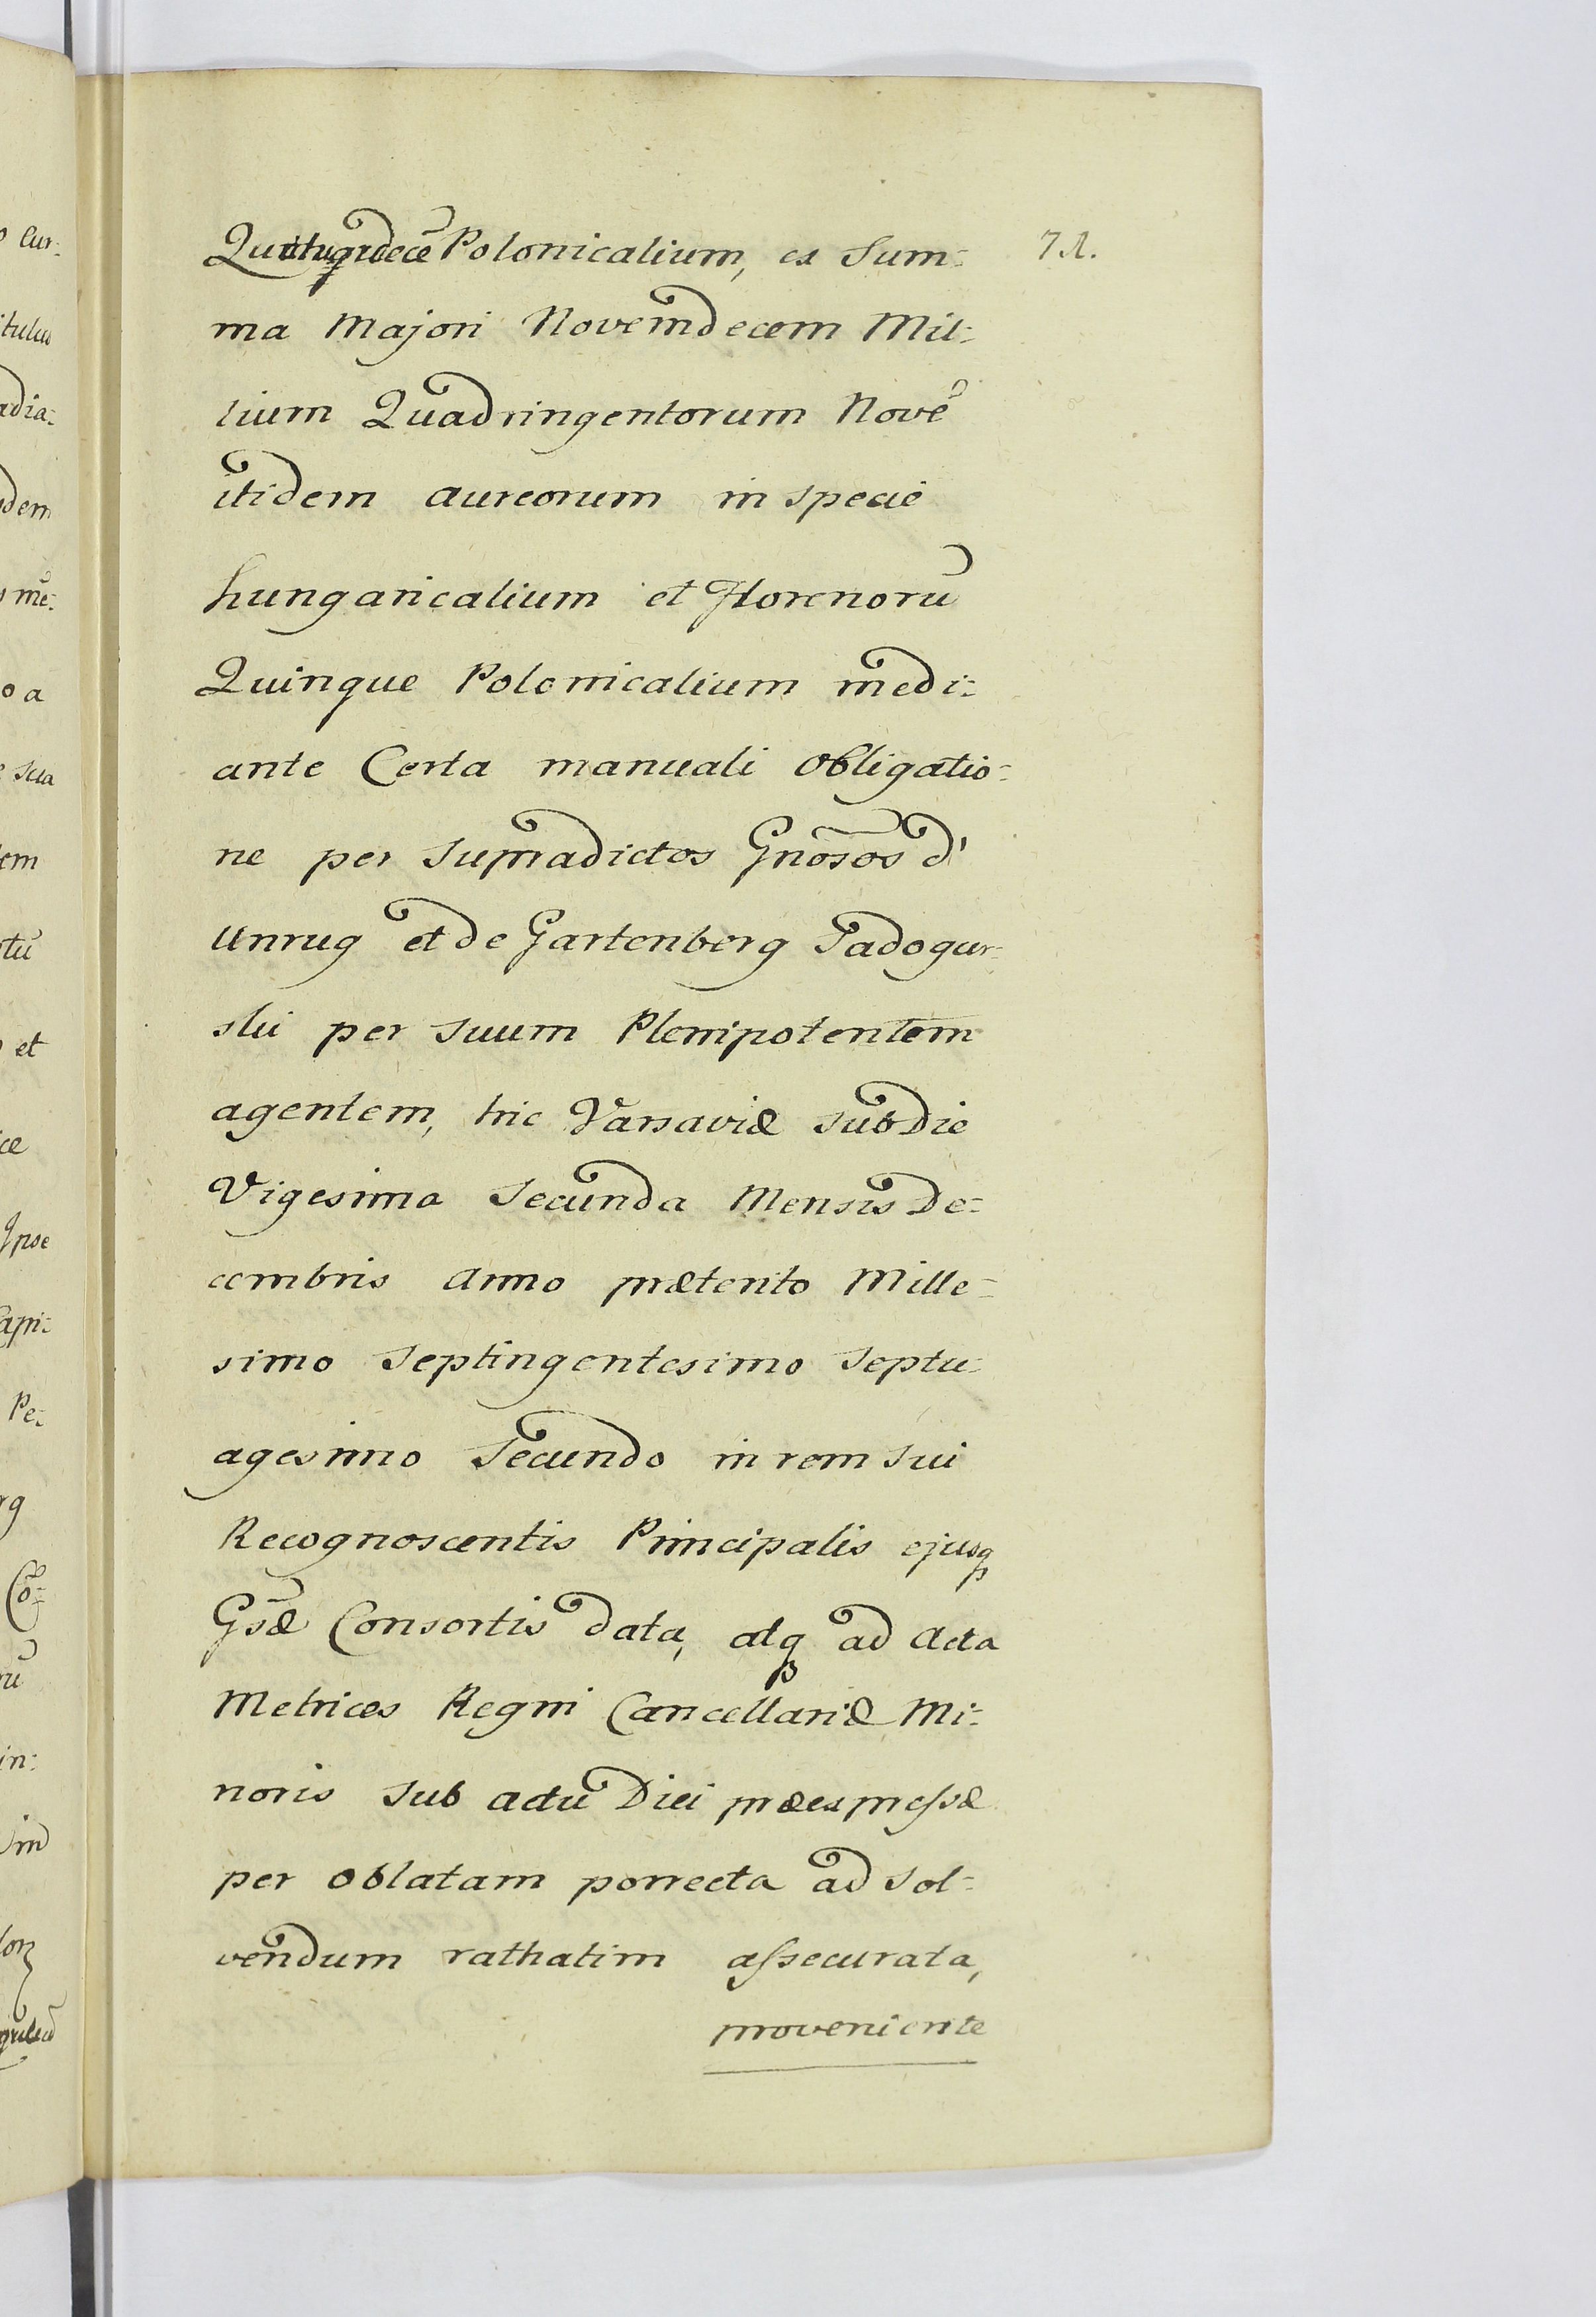 Quatuordecē Polonicalium, ex Sum= 71.
ma Majori Novemdecem Mil=
lium Quadringentorum Novē
itidem aureorum in specie
hungaricalium et Florenorū
Quinque Polonicalium medi=
ante Certa manuali Obligatio=
ne per supradictos Gñosos d'
Unrug et de Gartenberg Sadogur=
ski per suum Plenipotentem
agentem, hic Varsaviæ sub Die
Vigesima Secunda Mensis De=
cembris Anno præterito Mille=
simo Septingentesimo Septu=
agesimo Secundo in rem sui
Recognoscentis Principalis ejusq
Gsæ Consortis data, atq ad Acta
Metrices Regni Cancellariæ Mi=
noris sub actu Diei præexpressæ
per Oblatam porrecta ad sol=
vendum rathatim assecurata,
proveniente